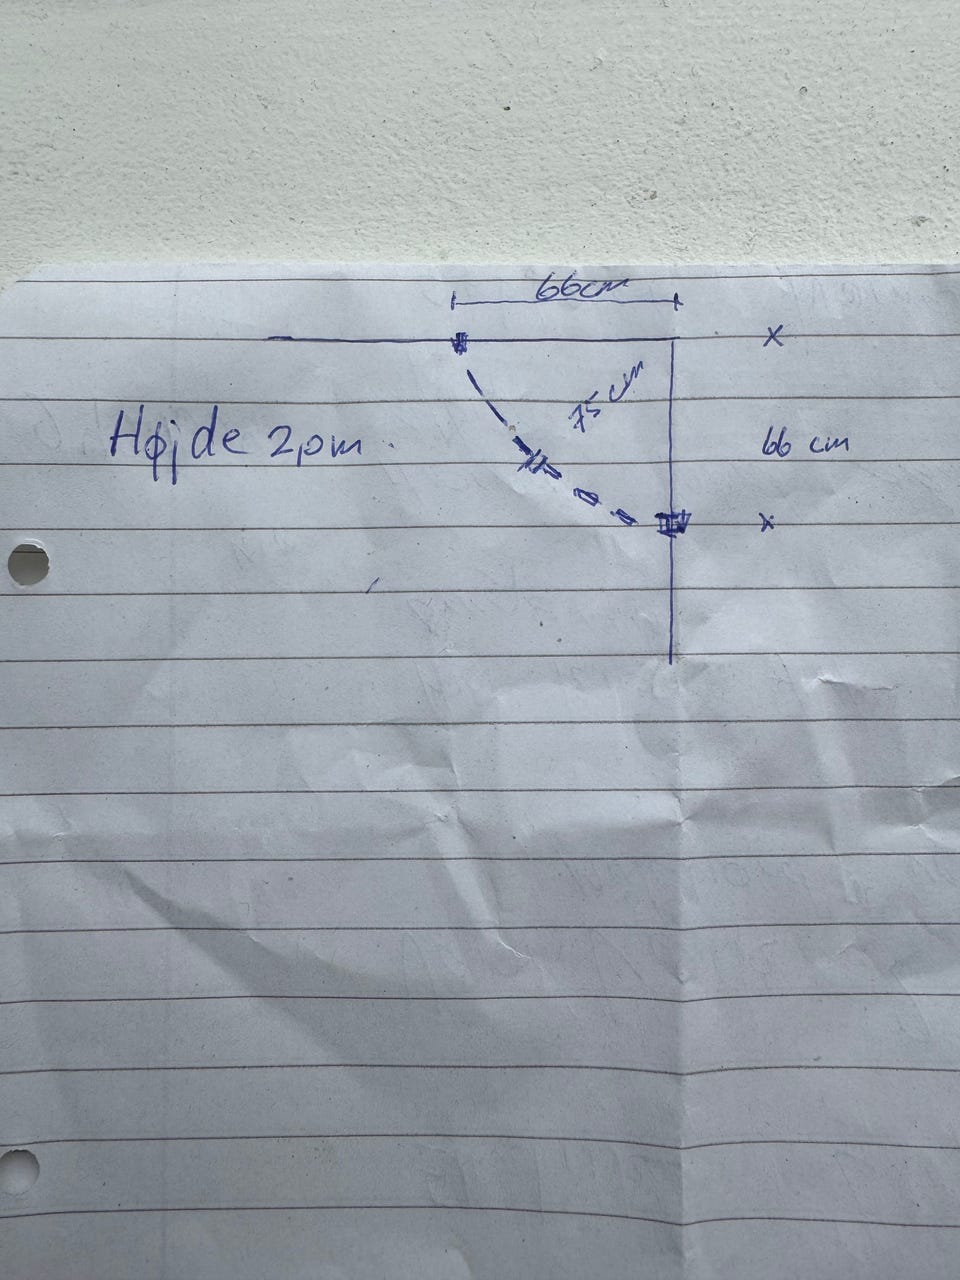 66cm
x
75 cm
Højde 2,0m.
66 cm
x